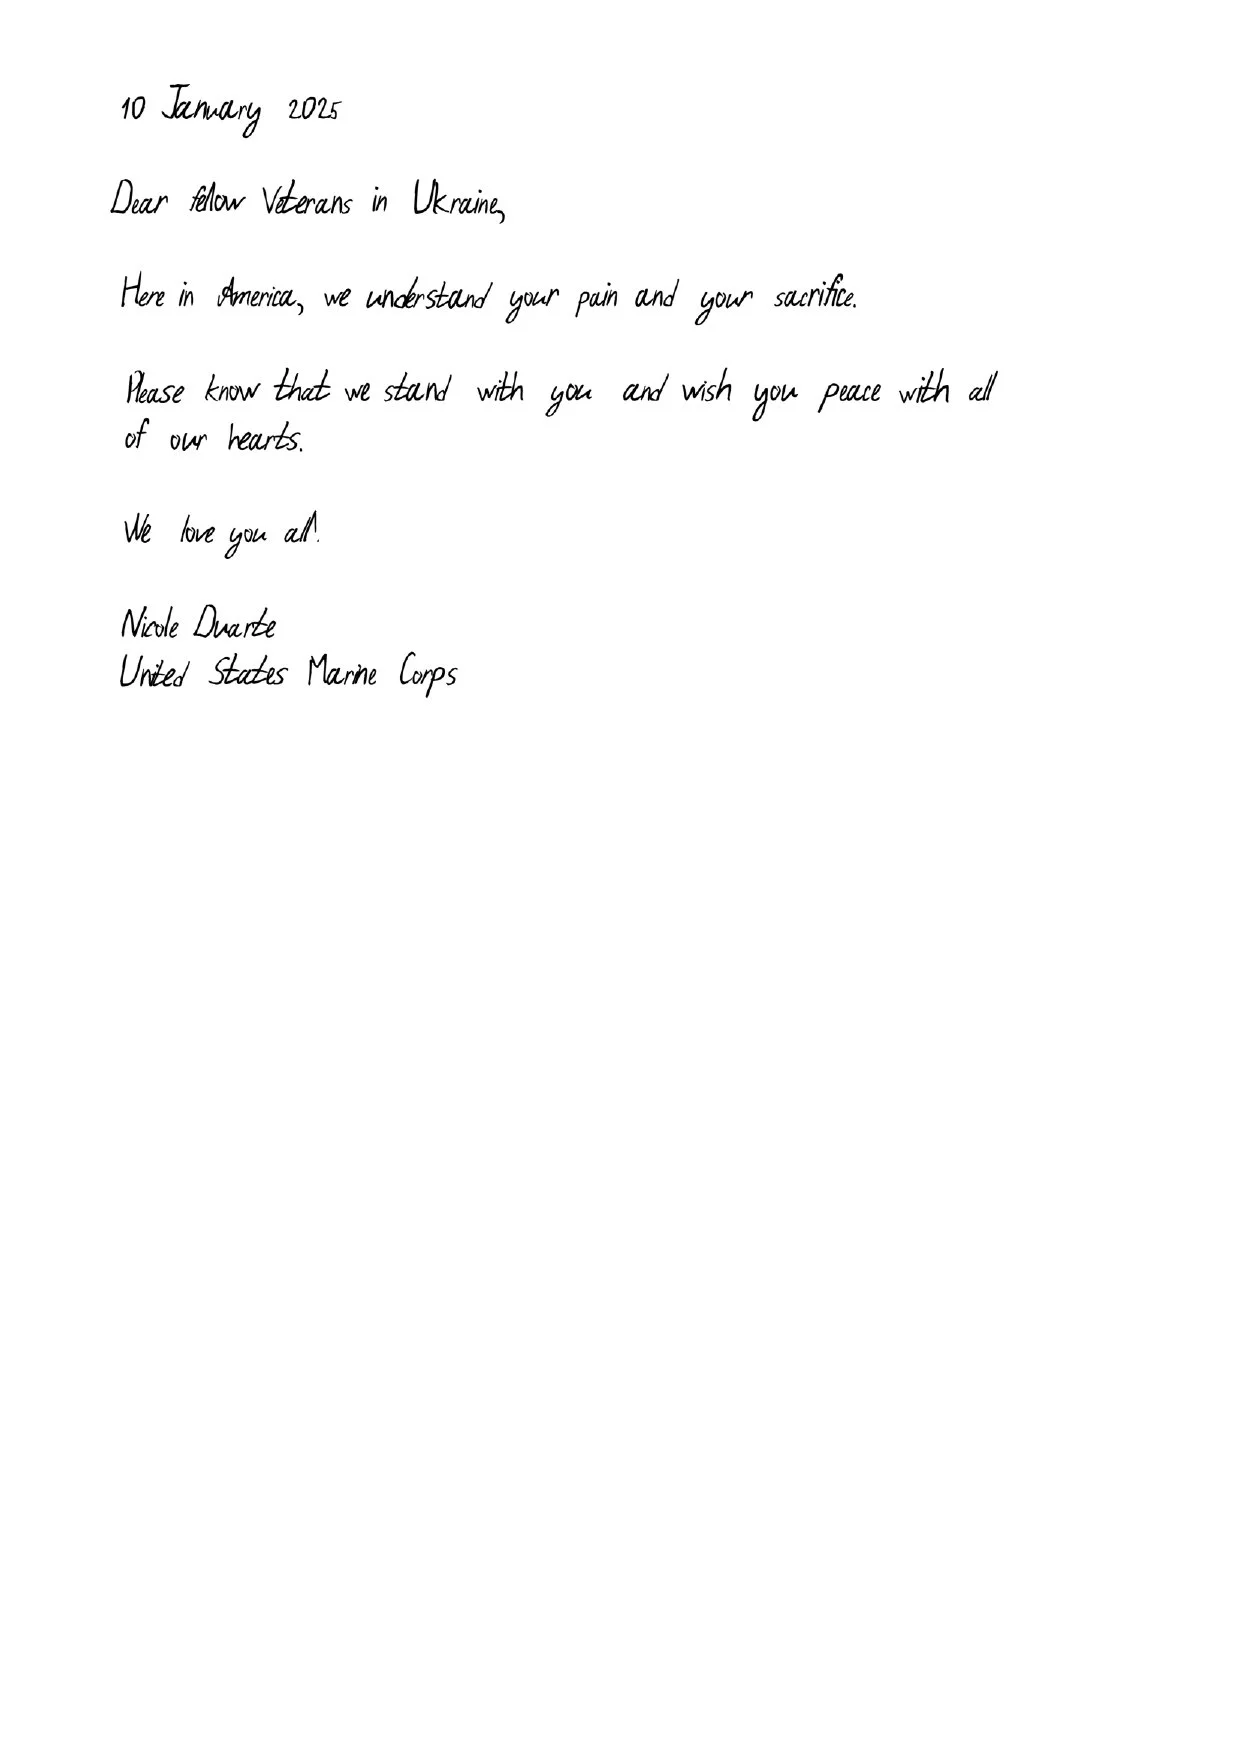 10 January 2025
Dear fellow Veterans in Ukraine,
Here in America, we understand your pain and your sacrifice.
Please know that we stand with you and wish you peace with all
of our hearts.
We love you all!
Nicole Duarte
United States Marine Corps